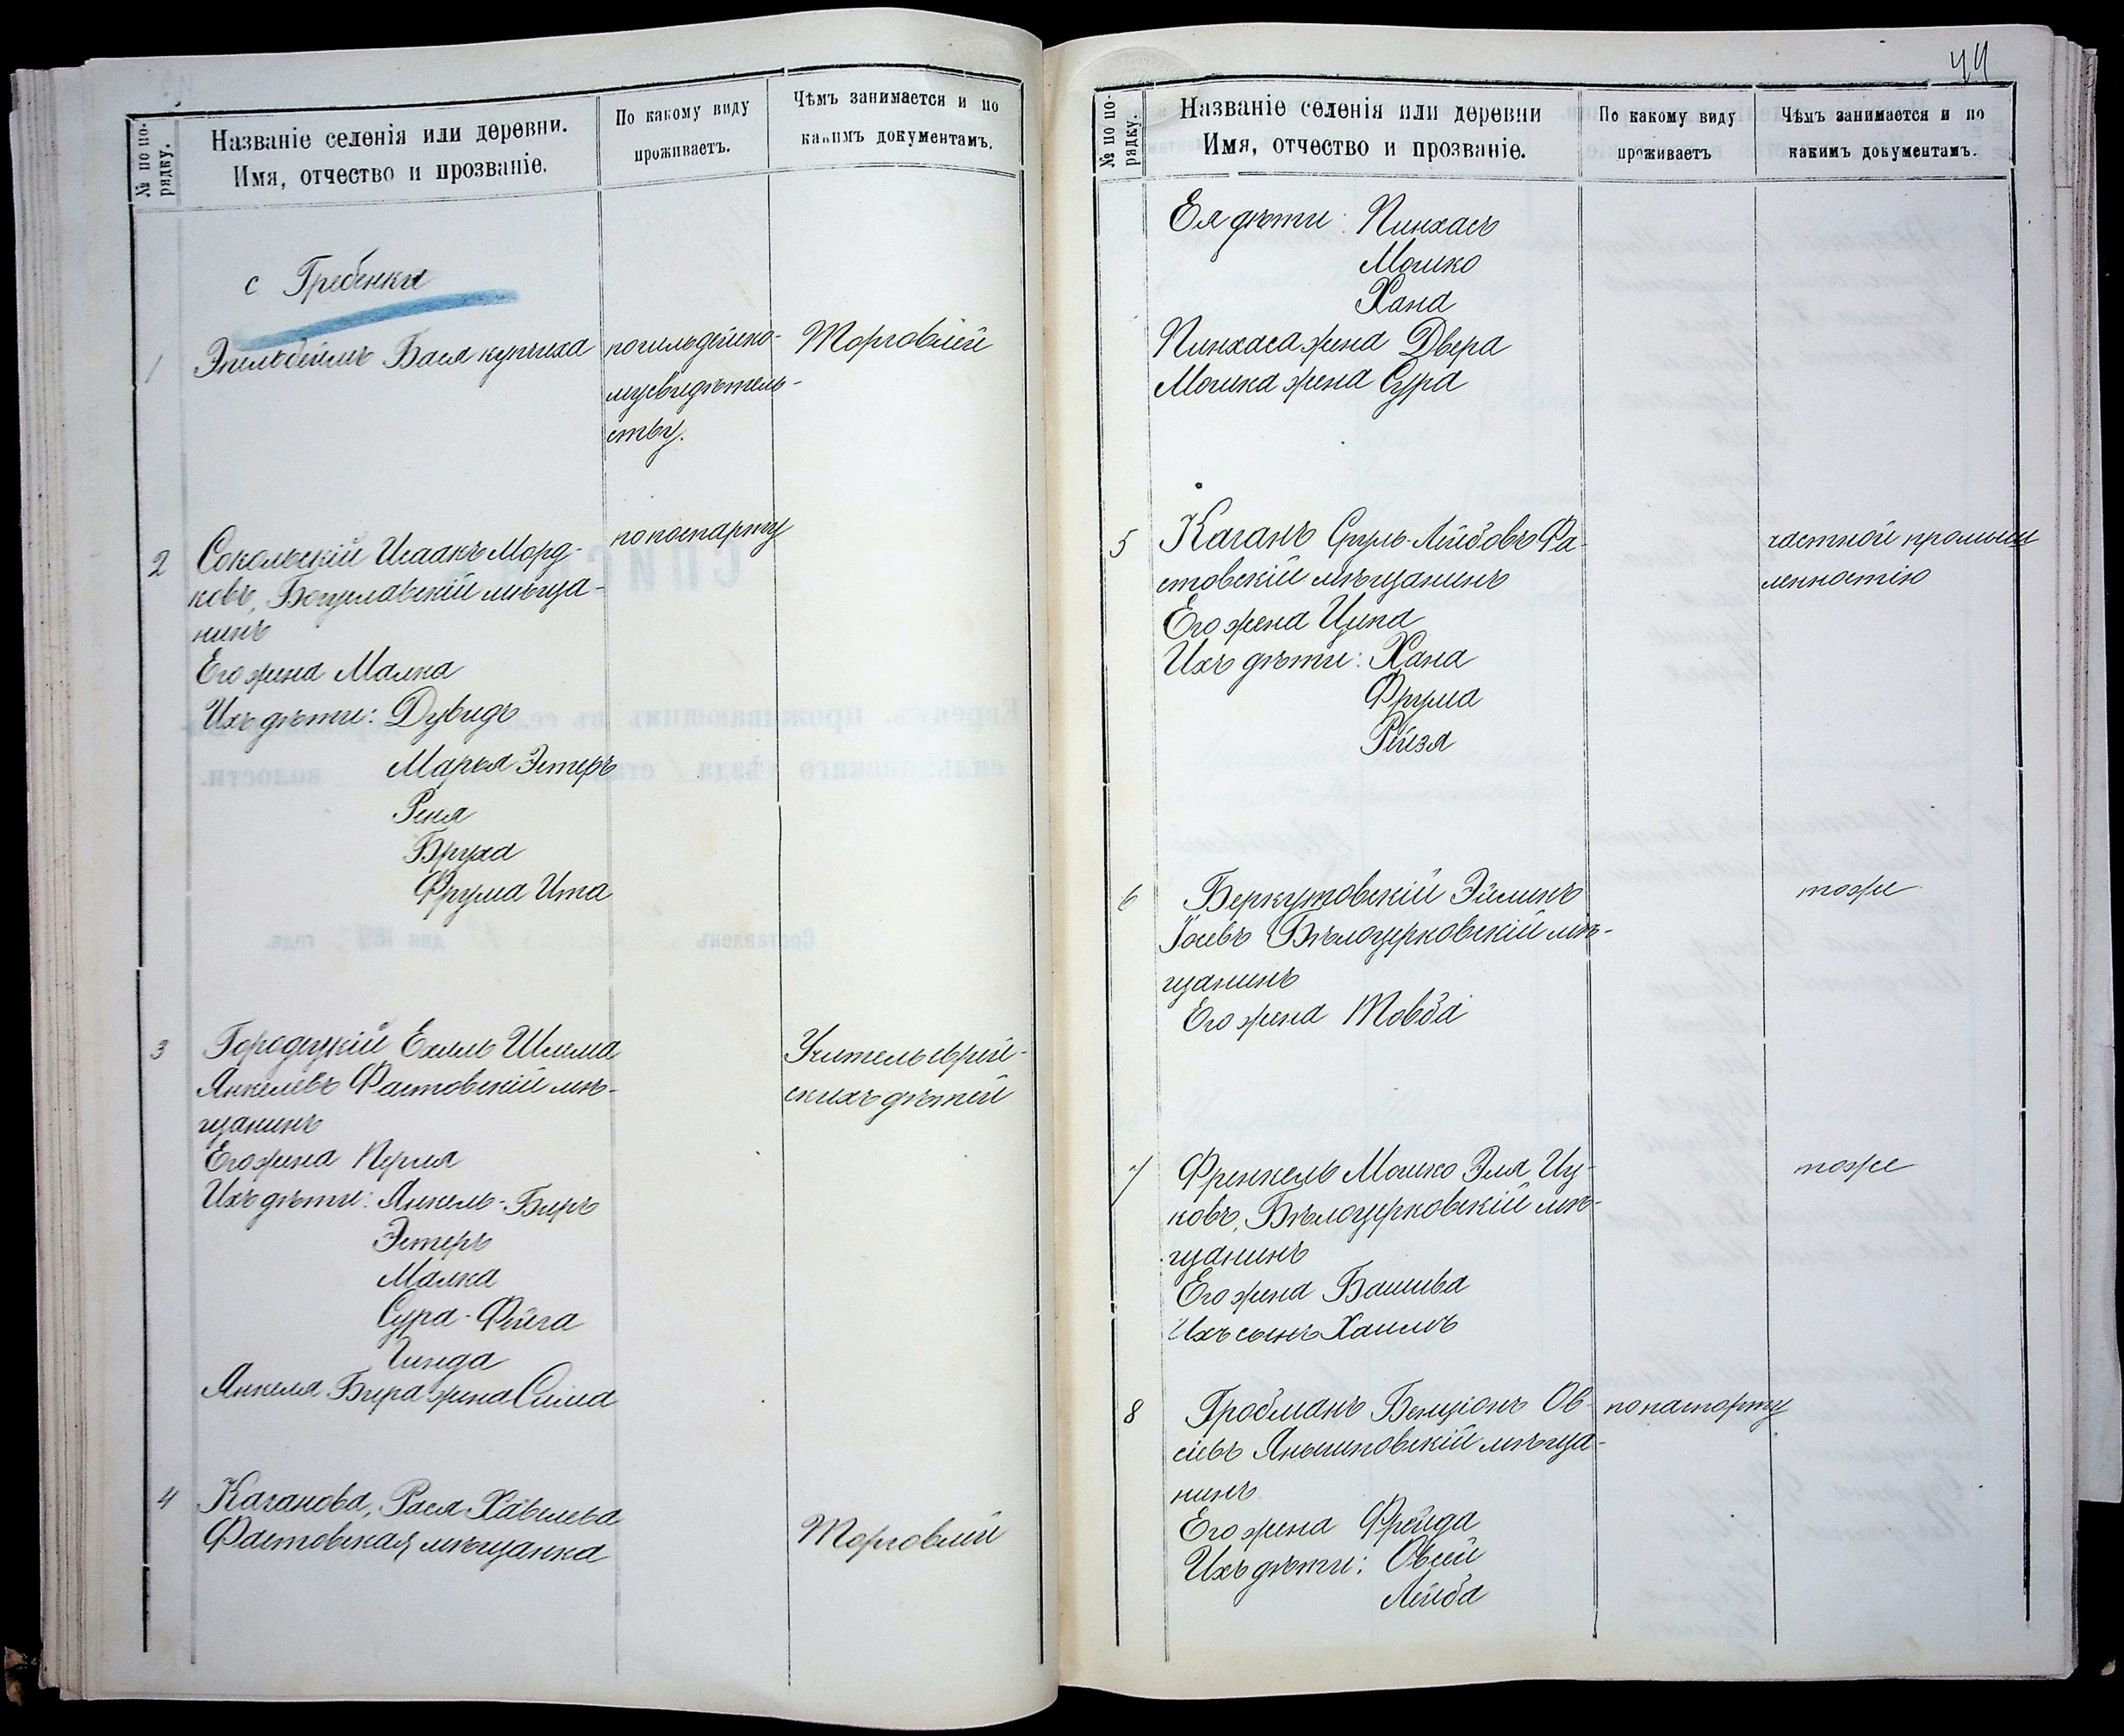 № по по-
рядку.
Названіе селенія или деревни.
Имя, отчество и прозваніе.
По какому виду
проживаетъ.
Чѣмъ занимается и по
какимъ документамъ.
с Гребенки
1 Эпельбеймъ Бася купчиха
погильдейско-
мусвидѣтель-
ству.
Торговлей
2 Сокольскій Исаакъ Морд-
ковъ, Богуславскій мѣща-
нинъ
попоспарту
Его жена Малка
Ихъ дѣти: Дувидъ
Марья Эстеръ
Реня
Бруха
Фрума Ита
3 Городецкій Ехиль Шлема
Янкелевъ Фастовскій мѣ-
щанинъ
Учитель еврей-
скихъ дѣтей
Его жена Перля
Ихъ дѣти: Янкель-Беръ
Эстеръ
Малка
Сура-Фейга
Гинда
Янкеля Бера жена Сима
4 Каганова, Рася Хавелева
Фастовская мѣщанка
Торговлей
44
№ по по-
рядку.
Названіе селенія или деревни
Имя, отчество и прозваніе.
По какому виду
проживаетъ
Чѣмъ занимается и по
какимъ документамъ.
Ея дѣти: Пинхасъ
Мошко
Хана
Пинхаса жена Двера
Мошка жена Сура
5 Каганъ Сруль-Лейбовъ Фа-
стовскій мѣщанинъ
частной промыш
ленностію
Его жена Ципа
Ихъ дѣти: Хана
Фрума
Рейзя
6 Беркутовскій Эйлинъ
Іосевъ Бѣлоцерковскій мѣ-
щанинъ
тоже
Его жена Товба
7 Френкель Мошко Эля Иц-
ковъ, Бѣлоцерковскій мѣ-
щанинъ
тоже
Его жена Башева
Ихъ сынъ Хаимъ
8 Гробманъ Бенціонъ Ов-
сіевъ Янышповскій мѣща-
нинъ
попаспорту
Его жена Фрейда
Ихъ дѣти: Овсей
Лейба